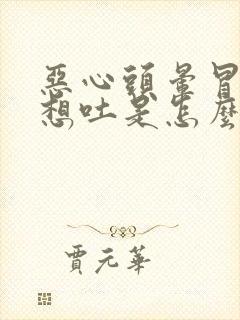 惡心頭暈冒
想吐是怎麼
賈元華